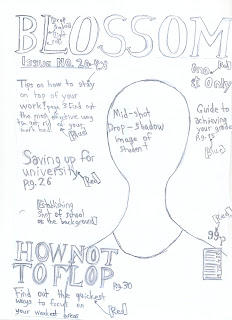 BLOSSOM
Issue No. 26
[Red]
One
& Only
Tips on how to stay
on top of your
work! pg. 3 Find out
the most effective way
to get rid of your
work
[Blue]
Mid-shot
Drop-shadow
image of
student
Guide to
achieving
your grade
pg. 15
[Blue]
Saving up for
university
pg. 26
[Red]
[Establishing
shot of school
as the background]
[Red]
99p
HOW NOT
TO FLOP
pg. 30
Find out the quickest
ways to focus on
your weakest areas
[Red]